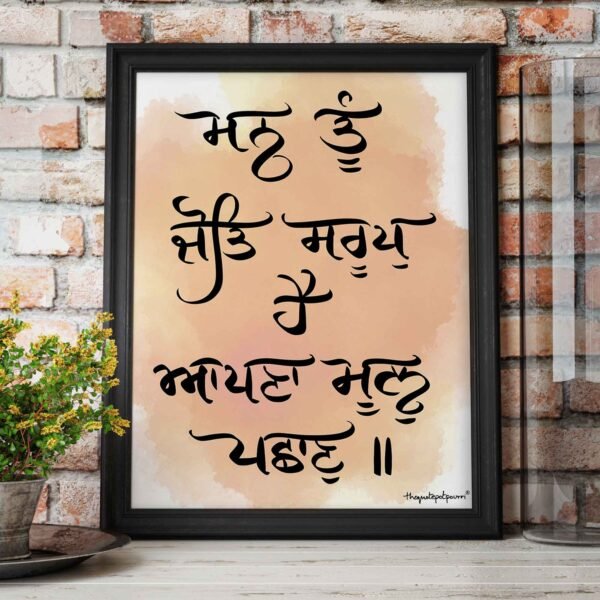 ਮਨ ਤੂੰ
ਜੋਤਿ ਸਰੂਪੁ
ਹੈ
ਆਪਣਾ ਮੂਲੁ
ਪਛਾਣੁ ॥
thequotepotpourri®